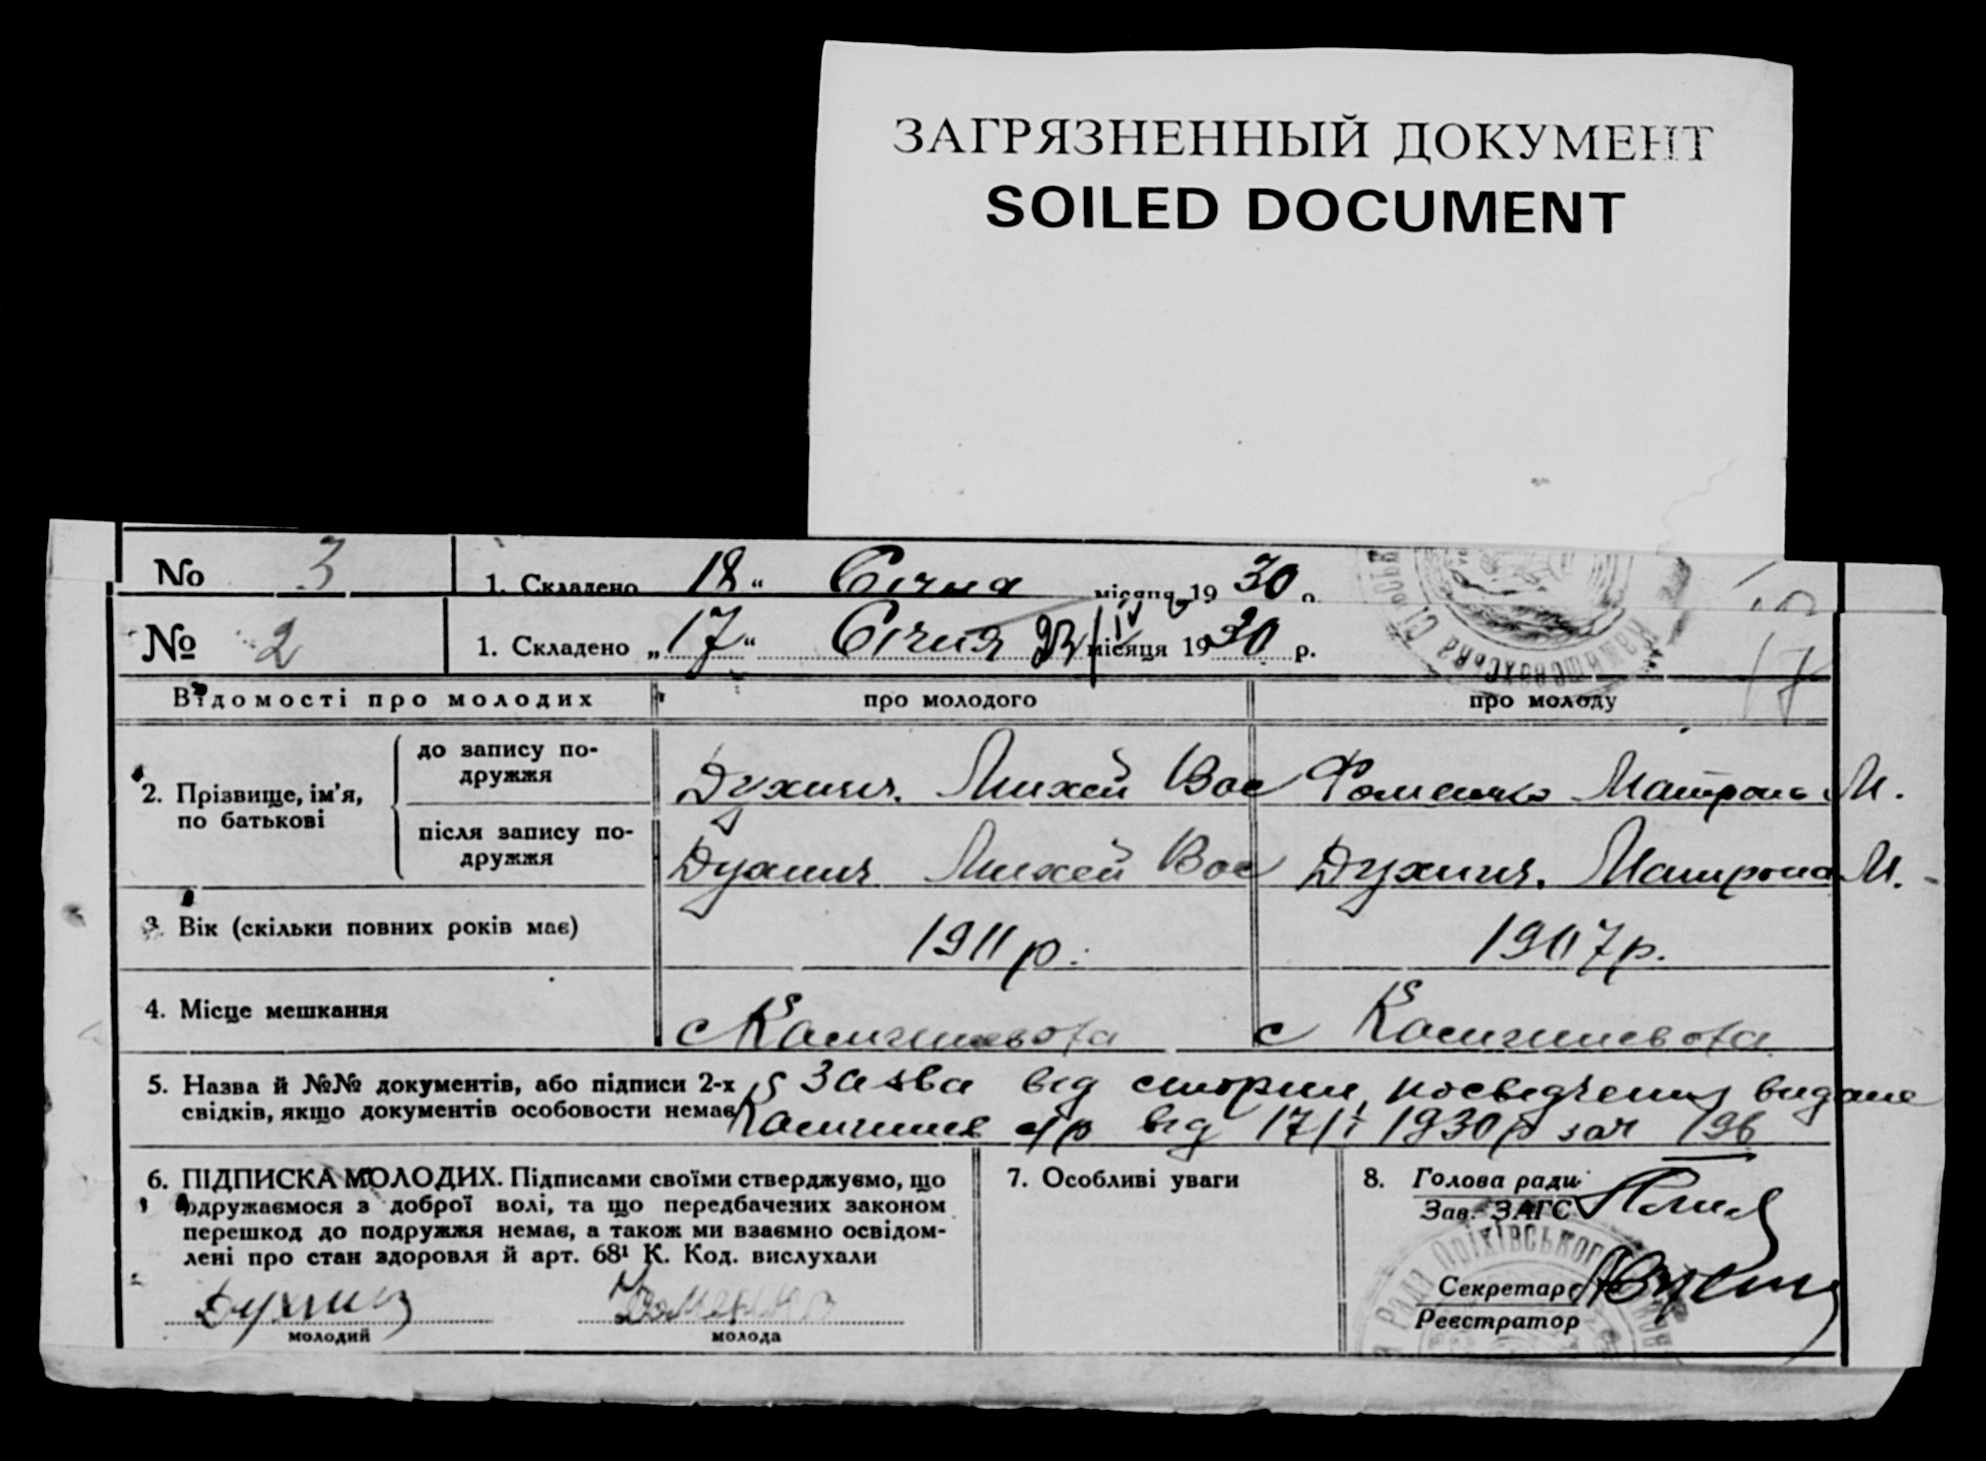 ЗАГРЯЗНЕННЫЙ ДОКУМЕНТ
SOILED DOCUMENT
№ 3 1. Складено 18 “ Січня місяця 19 30 р.
№ 2 1. Складено „ 17 “ Січня місяця 19 30 р.
17
Відомості про молодих про молодого про молоду
2. Прізвище, ім’я, по батькові
до запису подружжя Духнич. Михей Вас Фоменко Матрона М.
після запису подружжя Духнич Михей Вас Духнич. Матрона М.
3. Вік (скільки повних років має) 1911 р. 1907 р.
4. Місце мешкання с Камишеваха с Камишеваха
5. Назва й №№ документів, або підписи 2-х Заява від сторин, посведчения видане
свідків, якщо документів особовости немає Камишев с/р від 17/I 1930 р за № 196
6. ПІДПИСКА МОЛОДИХ. Підписами своїми стверджуємо, що
одружаємося з доброї волі, та що передбачених законом
перешкод до подружжя немає, а також ми взаємно освідом-
лені про стан здоровля й арт. 68¹ К. Код. вислухали
Духнич Фоменко
молодий молода
7. Особливі уваги
8. Голова ради
Зав. ЗАГС
Секретар
Реєстратор